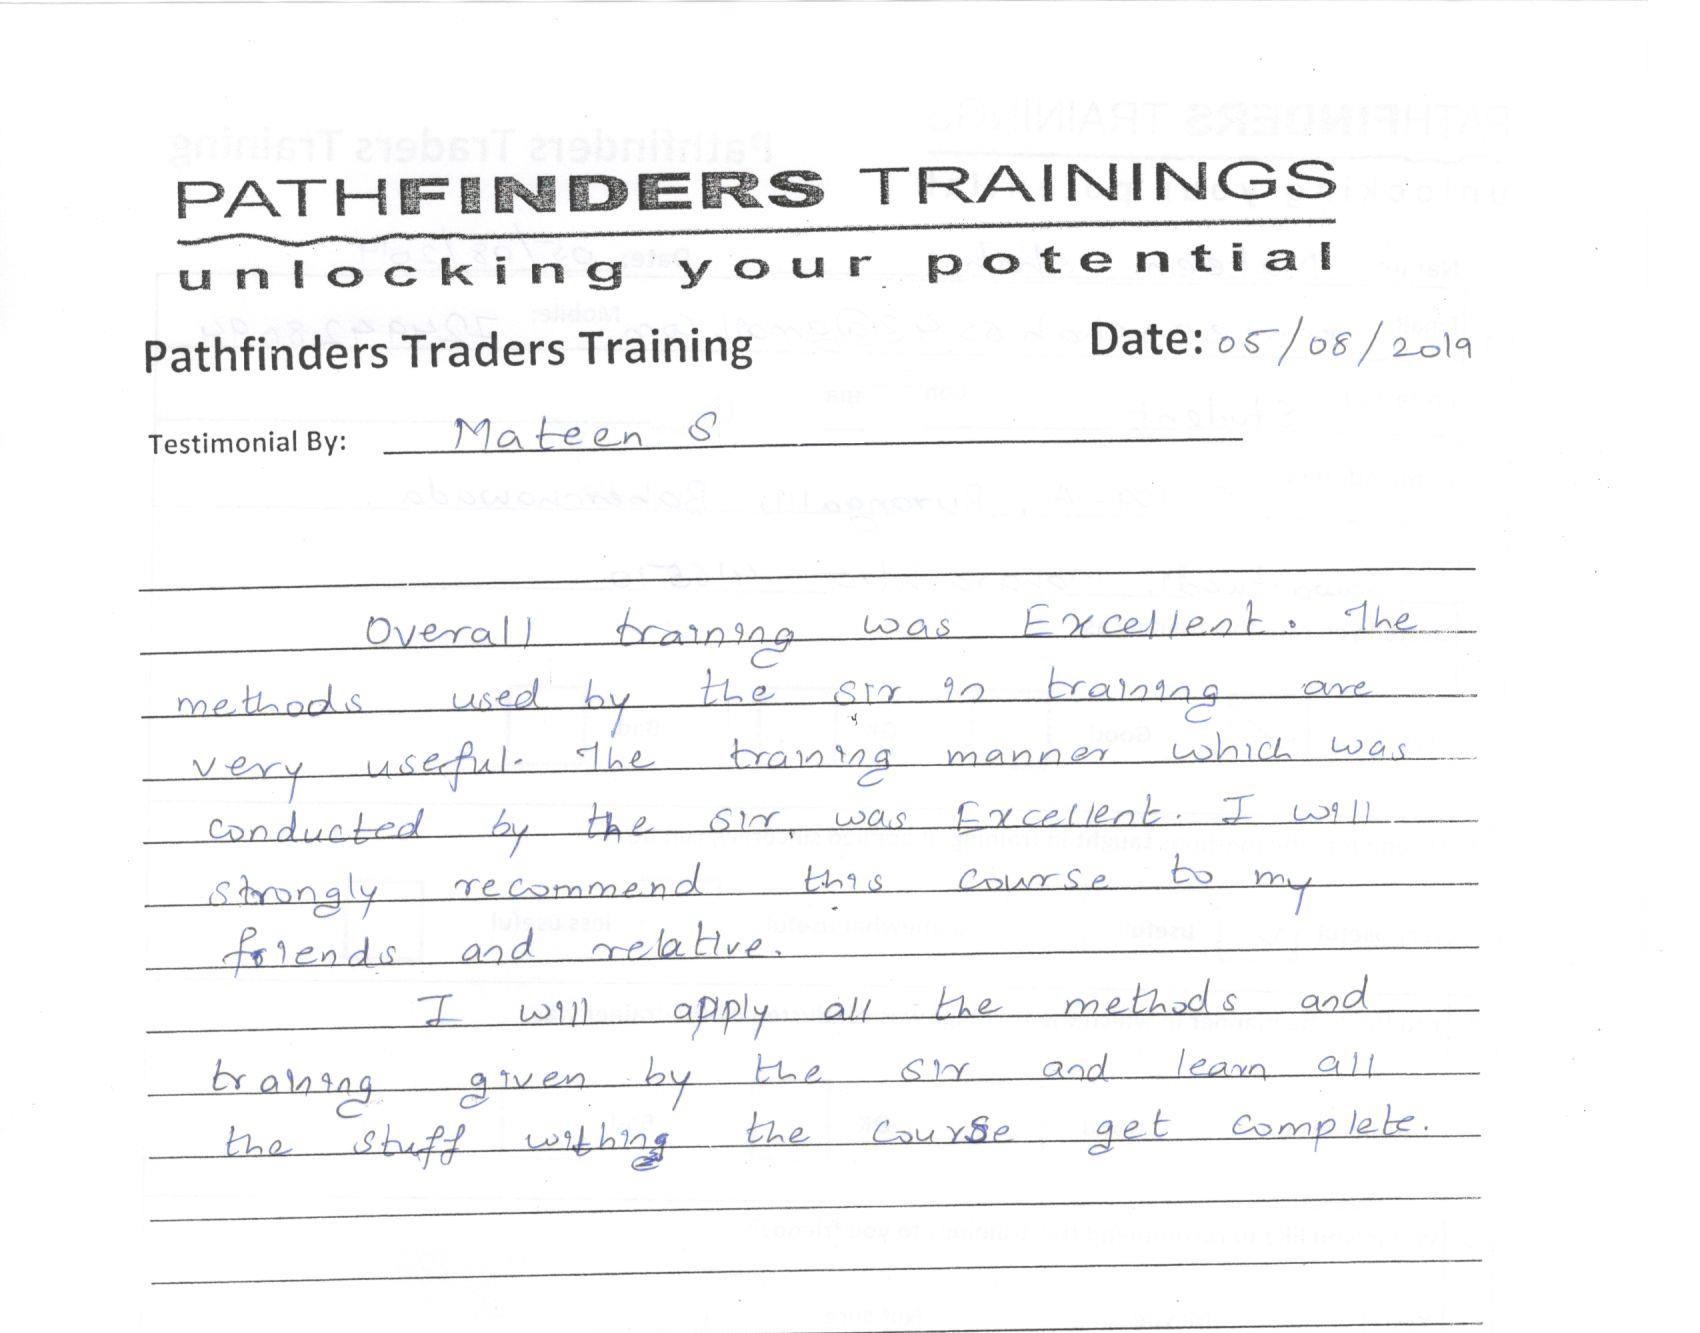 PATHFINDERS TRAININGS
unlocking your potential
Pathfinders Traders Training Date: 05/08/2019
Testimonial By: Mateen S
Overall training was Excellent. The
methods used by the sir in training are
very useful. The training manner which was
conducted by the sir, was Excellent. I will
strongly recommend this course to my
friends and relative.
I will apply all the methods and
training given by the sir and learn all
the stuff the course get complete.